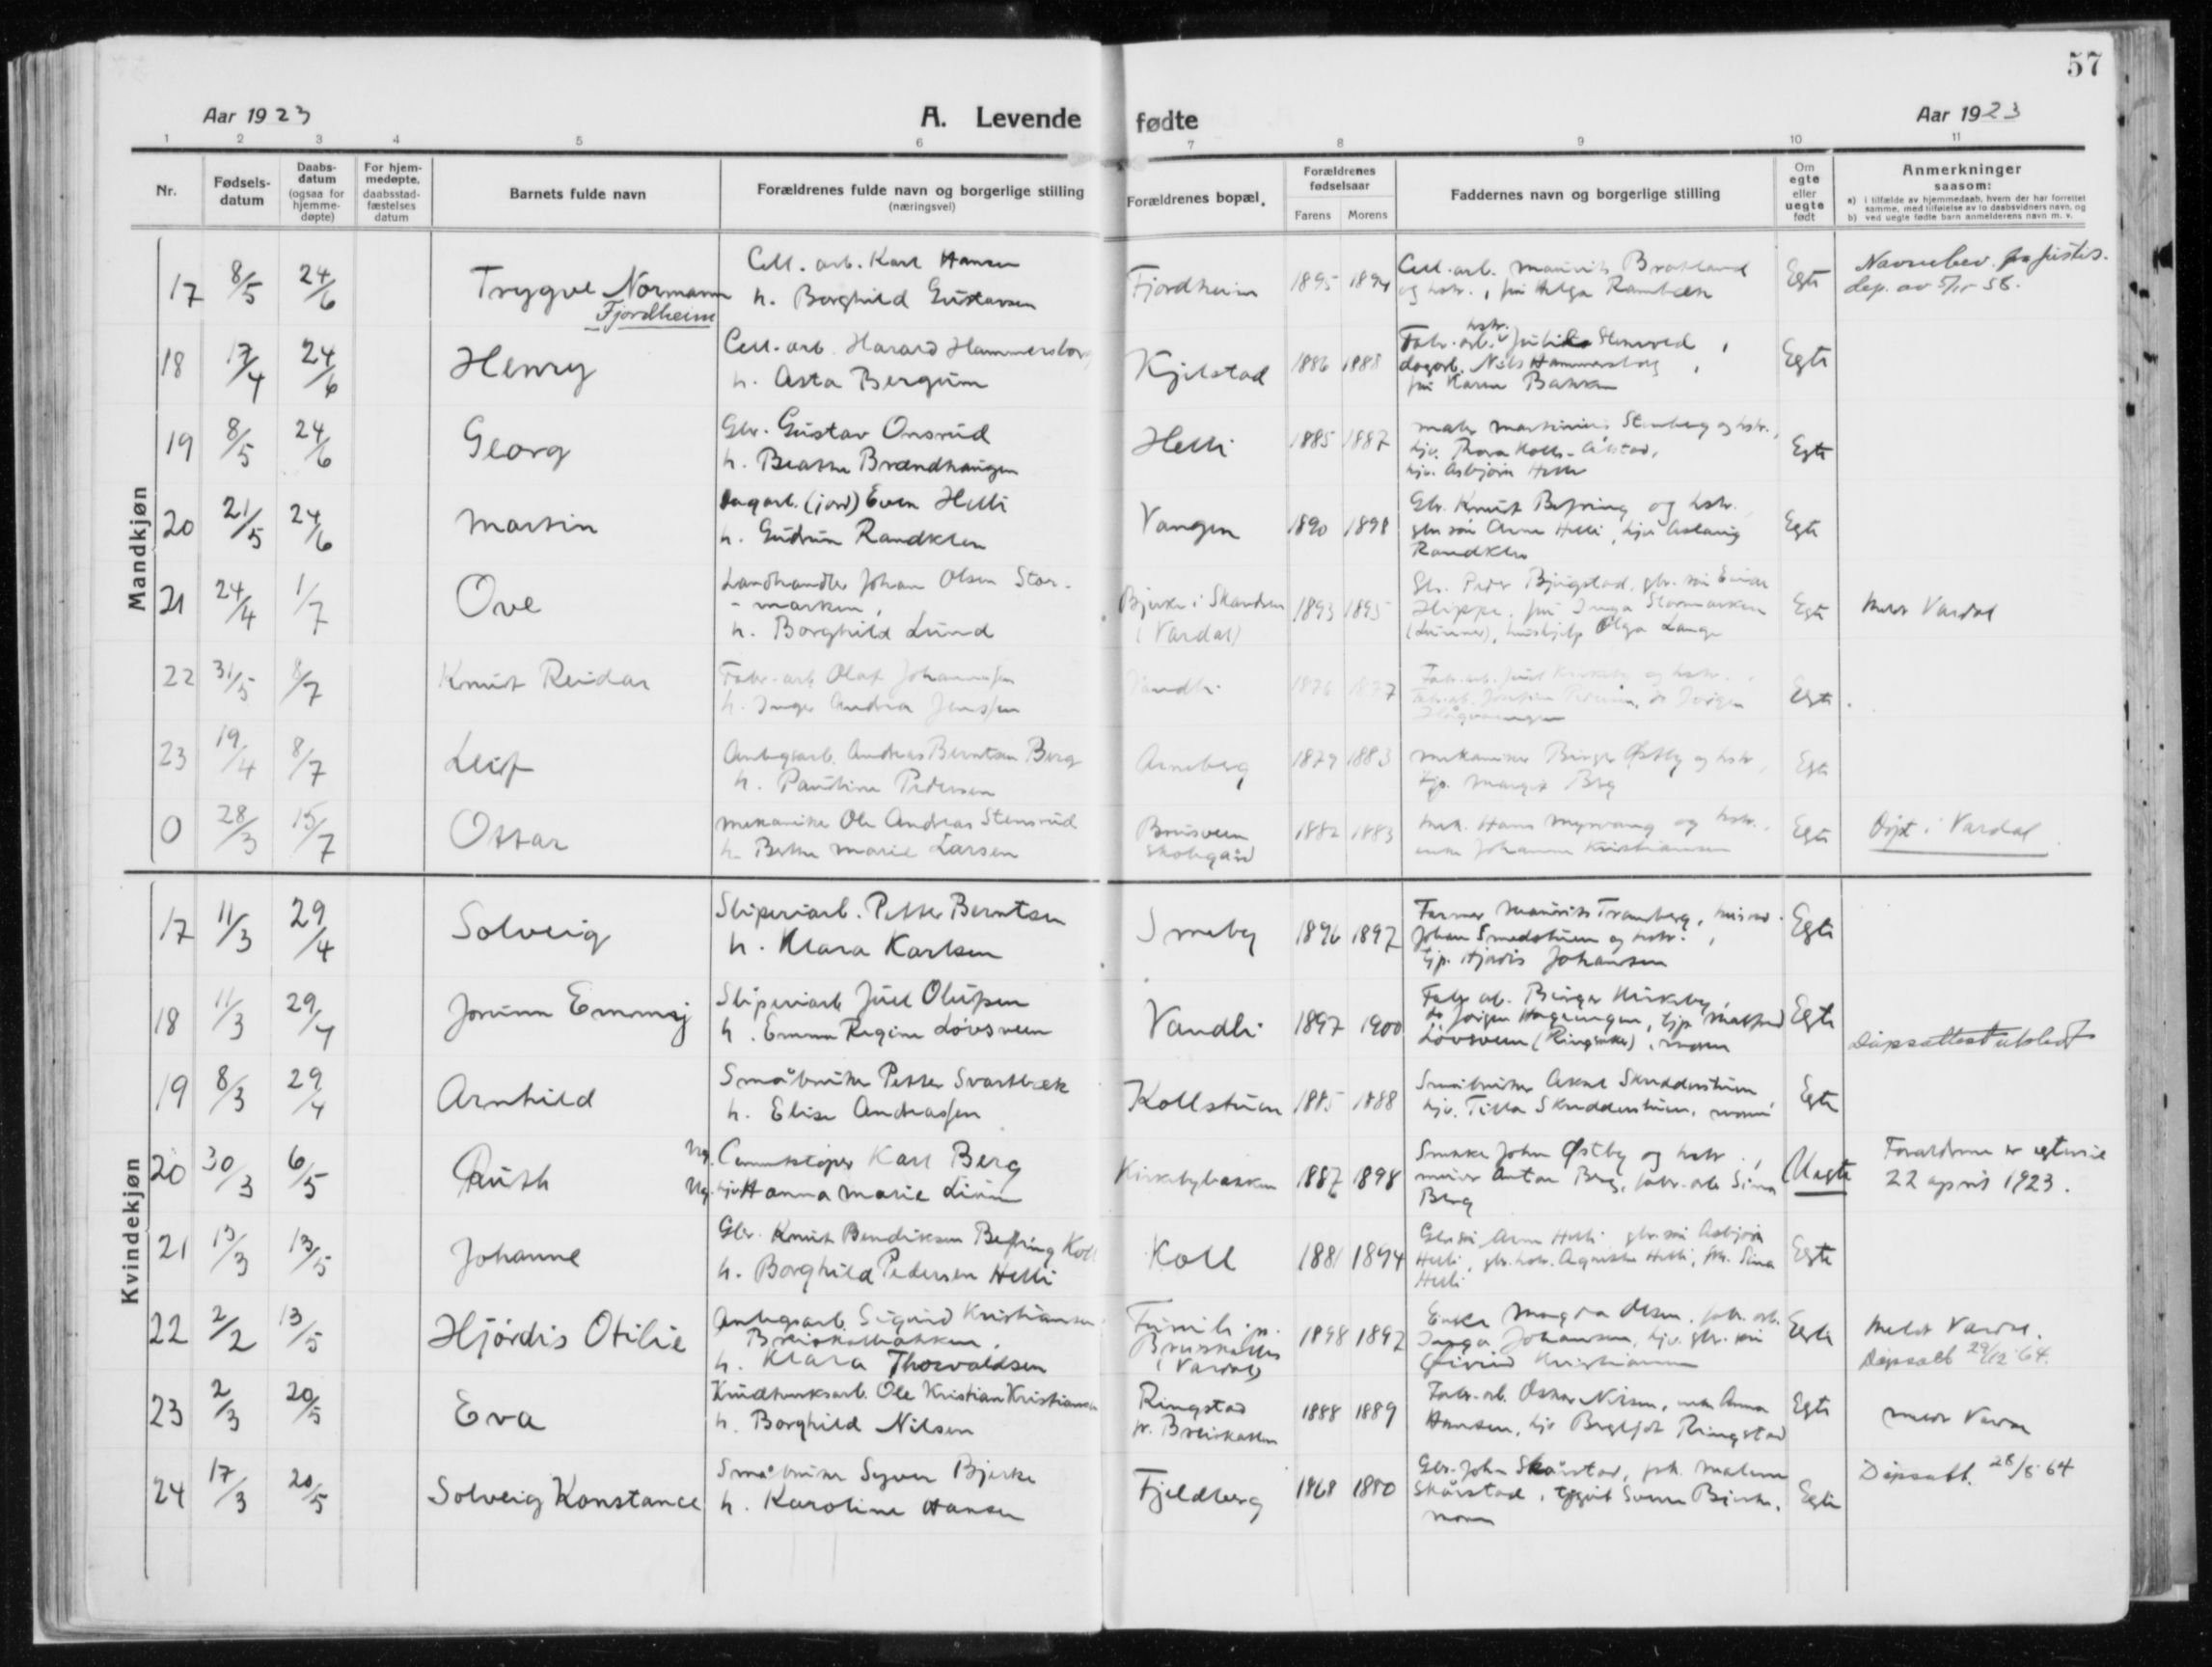 57
Aar 1923
A. Levende fødte
Aar 1923
1 2 3 4 5 6 7 8 9 10 11
Nr.
Fødsels-
datum
Daabs-
datum
(ogsaa for
hjemme-
døpte)
For hjem-
medøpte,
daabsstad-
fæstelses
datum
Barnets fulde navn
Forældrenes fulde navn og borgerlige stilling
(næringsvei)
Forældrenes bopæl.
Forældrenes
fødselsaar
Farens Morens
Faddernes navn og borgerlige stilling
Om
egte
eller
uegte
født
Anmerkninger
saasom:
a) i tilfælde av hjemmedaab, hvem der har forrettet
samme, med tilføielse av to daabsvidners navn, og
b) ved uegte fødte barn anmelderens navn m. v.
Mandkjøn
17 8/5 24/6 Trygve Normann
Fjordheim
Cell. arb. Karl Hansen
h. Borghild Gustavsen
Fjordheim 1895 1894
Cell. arb. Mauritz
og hstr., frk Helga
Egte
Navnebev. fra justis.
dep. av 5/11 58.
18 17/4 24/6 Henry
Cell. arb. Harald Hammersborg
h. Asta Bergum
Kjelstad 1886 1888
Fabr. arb. hstr.
dagarb. Nils Hammersborg,
Karen Bakken
Egte
19 8/5 24/6 Georg
Gbr. Gustav Onsrud
h. Beathe Brændhaugen
Helli 1885 1887
maler Martinius Stenberg og hstr.,
hjv. Thora Kolls-Ålstad,
hjv. Asbjørn Helli
Egte
20 21/5 24/6 Martin
Dagarb. (jord) Even Helli
h. Gudrun Randklev
Vangen 1890 1898
Gbr. Knut Befring og hstr.,
gbr. søn Arne Helli, hjv. Aslaug
Randklev
Egte
21 24/4 1/7 Ove
Landhandler Johan Olsen Stor-
-marken,
h. Borghild Lund
Bjerke i Skandsen
(Vardal)
1893 1895
Gbr. Peder Bjugstad, gbr. søn Einar
Hippe, Inga Stormarken
(Lunner), hushjelp Olga Lange
Egte
Meldt Vardal
22 31/5 8/7 Knut Reidar
Fabr. arb. Olaf Johannessen
h. Inger Andrea Jenssen
Vandli 1876 1877
Egte
23 19/4 8/7 Leif
Anlegsarb. Andreas Berntsen Berg
h. Pauline Pedersen
Arneberg 1879 1883
Mekaniker Birger Østby og hstr.,
tjp. Margit Berg
Egte
0 28/3 15/7 Ottar
Mekaniker Ole Andreas Stensrud
h. Berthe Marie Larsen
Brusveen
skolegård
1882 1883
Mek. Hans Myrvang og hstr.,
enke Johanne Kristiansen
Egte
Døpt i Vardal
Kvindekjøn
17 11/3 29/4 Solveig
Sliperiarb. Petter Berntsen
h. Klara Karlsen
Smeby 1896 1897
Farmer Mauritz Tranberg,
Johan Smedstuen og hstr.,
tjp. Hjørdis Johansen
Egte
18 11/3 29/4 Jorunn Emmy
Sliperiarb. Juel Olufsen
h. Emma Regine Løvsveen
Vandli 1897 1900
Fabr. arb. Birger Kirkeby,
do Jørgen Hageengen, tjp.
Løvsveen (Ringsaker), moren
Egte
Dåpsattest utstedt
19 8/3 29/4 Arnhild
Småbruker Petter Svartbæk
h. Elise Andreassen
Kollstuen 1885 1888
Småbruker Aksel Skredderstuen,
hjv. Tilla Skredderstuen, moren
Egte
20 30/3 6/5 Ruth
Ug. Cementstøper Karl Berg
Ug. hjv. Hanna Marie Lium
Kirkebybakken 1887 1898
Snekker John Østby og hstr.,
murer Anton Berg, fabr. arb. Sina
Berg
Uegte
Forældrene er egteviet
22 april 1923.
21 13/3 13/5 Johanne
Gbr. Knut Bendiksen Befring Koll
h. Borghild Pedersen Helli
Koll 1881 1894
Gbr. søn Arne Helli, gbr. søn Asbjørn
Helli, gbr. hstr. Agnethe Helli, frk. Sina
Helli
Egte
22 2/2 13/5 Hjørdis Otilie
Anlegsarb. Sigurd Kristiansen
Breiskallbakken,
h. Klara Thorvaldsen
Breiskallen
(Vardal)
1898 1897
Enke Magda Olsen, fabr. arb.
Inga Johansen, hjv. gbr. søn
Øivind Kristiansen
Egte
Meldt Vardal.
Dåpsatt. 29/12 64.
23 2/3 20/5 Eva
Krudtverksarb. Ole Kristian Kristiansen
h. Borghild Nilsen
Ringstad
pr. Breiskallen
1888 1889
Fabr. arb. Oskar Nilsen, Anna
Hansen, hjv. Bergljot Ringstad
Egte
Meldt Vardal
24 17/3 20/5 Solveig Konstance
Småbruker Syver Bjerke
h. Karoline Hansen
Fjeldberg 1868 1880
Gbr. John Skårstad, frk. Malene
Skårstad, Bjerke,
moren
Egte
Dåpsatt. 28/5 64